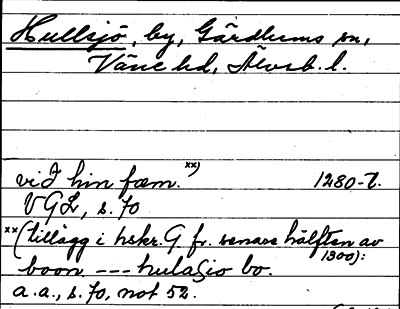 Hullsjö, by, Gärdhems sn,
Väne hd, Älvsb. l.
við hin fæm. xx) 1280-t.
VGL, s. 70
xx (tillägg i hskr. G fr. senare hälften av
1300):
boon --- hulaSio bo.
a.a., s. 70, not 52.